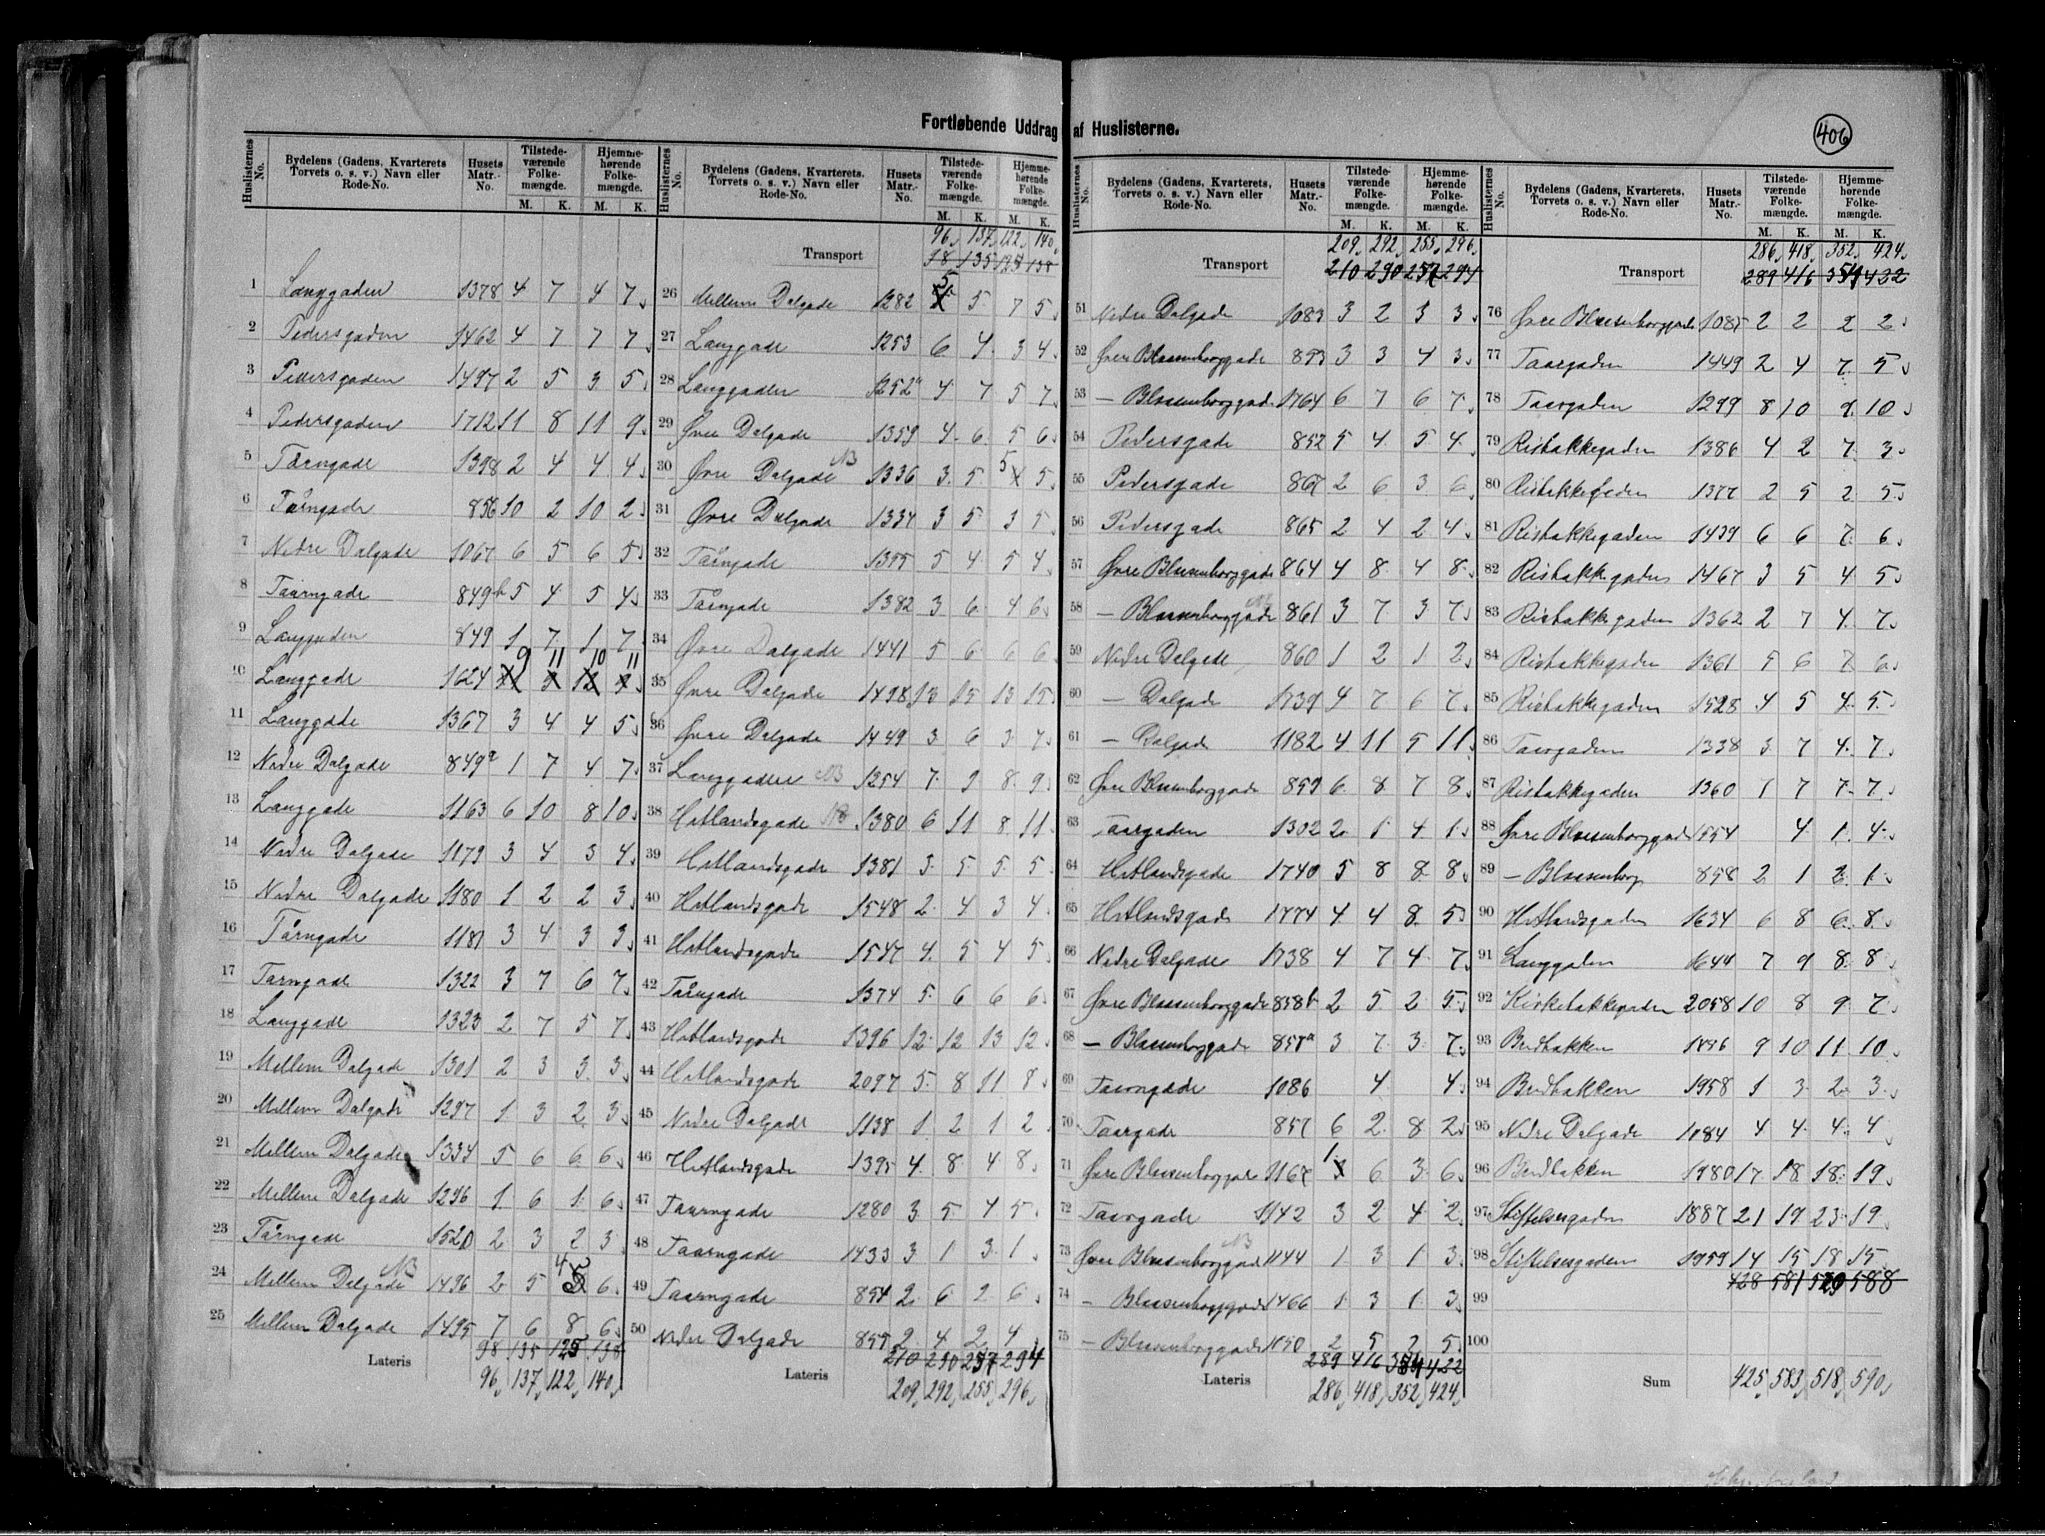 Fortløbende Uddrag af Huslisterne.
406
Huslisternes No. Bydelens (Gadens, Kvarterets Torvets o. s. v.) Navn eller Rode-No. Husets Matr.-No. Tilstede-værende Folke-mængde. M. K. Hjemme-hørende Folke-mængde. M. K.
1 Langgaden 1378 4 7 4 7
2 Pedersgaden 1462 4 7 7 7
3 Pedersgaden 1497 2 5 3 5
4 Pedersgaden 1712 11 8 11 9
5 Tårngade 1398 2 4 4 4
6 Tårngade 856 10 2 10 2
7 Nedre Dalgade 1067 6 5 6 5
8 Taarngade 849b 5 4 5 4
9 Langgaden 849 1 7 1 7
10 Langgade 1624 9 11 10 11
11 Langgade 1367 3 4 4 5
12 Nedre Dalgade 849a 1 7 4 7
13 Langgade 1163 6 10 8 10
14 Nedre Dalgade 1179 3 4 3 4
15 Nedre Dalgade 1180 1 2 2 3
16 Tårngade 1181 3 4 3 3
17 Tarngade 1322 3 7 6 7
18 Langgade 1323 2 7 5 7
19 Mellem Dalgade 1301 2 3 3 3
20 Mellem Dalgade 1297 1 3 2 3
21 Mellem Dalgade 1334 5 6 6 6
22 Mellem Dalgade 1296 1 6 1 6
23 Tårngade 1520 2 3 2 3
24 Mellem Dalgade NB 1496 2 5 4 6
25 Mellem Dalgade 1495 7 6 8 6
98 135 125 138
Lateris 96 137 122 140
Huslisternes No. Bydelens (Gadens, Kvarterets, Torvets o. s. v.) Navn eller Rode-No. Husets Matr.-No. Tilstede-værende Folke-mængde. M. K. Hjemme-hørende Folke-mængde. M. K.
96 137 122 140
Transport 98 135 125 138
26 Mellem Dalgade 1282 5 5 7 5
27 Langgade 1253 6 4 3 4
28 Langgaden 1252a 4 7 5 7
29 Øvre Dalgade 1359 4 6 5 6
30 Øvre Dalgade NB 1336 3 5 5 5
31 Øvre Dalgade 1334 3 5 3 5
32 Tårngade 1355 5 4 5 4
33 Tårngade 1382 3 6 4 6
34 Øvre Dalgade 1441 5 6 6 6
35 Øvre Dalgade 1498 13 15 13 15
36 Øvre Dalgade 1449 3 6 3 7
37 Langgaden NB 1254 7 9 8 9
38 Hetlandsgade NB 1380 6 11 8 11
39 Hetlandsgade 1381 3 5 5 5
40 Hetlandsgade 1548 2 4 3 4
41 Hetlandsgade 1547 4 5 4 5
42 Tårngade 1374 5 6 6 6
43 Hetlandsgade 1396 12 12 13 12
44 Hetlandsgade 2097 5 8 11 8
45 Nedre Dalgade 1138 1 2 1 2
46 Hetlandsgade 1395 4 8 4 8
47 Taarngade 1280 3 5 4 5
48 Taarngade 1433 3 1 3 1
49 Taarngade 854 2 6 2 6
50 Nedre Dalgade 855 2 4 2 4
210 290 257 294
Lateris 209 292 255 296
Huslisternes No. Bydelens (Gadens, Kvarterets, Torvets o. s. v.) Navn eller Rode-No. Husets Matr.-No. Tilstede-værende Folke-mængde. M. K. Hjemme-hørende Folke-mængde. M. K.
209 292 255 296
Transport 210 290 257 294
51 Nedre Dalgade 1083 3 2 3 3
52 Øvre Blaasenborggade 853 3 3 4 3
53 — Blaasenborggade 1764 6 7 6 7
54 Pedersgade 852 5 4 5 4
55 Pedersgade 867 2 6 3 6
56 Pedersgade 865 2 4 2 4
57 Øvre Blaasenborggade 864 4 8 4 8
58 — Blaasenborggade 861 3 7 3 7
59 Nedre Dalgade 860 1 2 1 2
60 — Dalgade 1739 4 7 6 7
61 — Dalgade 1182 4 11 5 11
62 Øvre Blaasenborggade 859 6 8 7 8
63 Taargaden 1302 2 1 4 1
64 Hetlandsgade 1740 5 8 8 8
65 Hetlandsgade 1774 4 4 8 5
66 Nedre Dalgade 1738 4 7 4 7
67 Øvre Blaasenborggade 858b 2 5 2 5
68 — Blaasenborggade 858a 3 7 3 7
69 Taarngade 1086 4 4
70 Taargade 857 6 2 8 2
71 Øvre Blaasenborggade 1167 1 6 3 6
72 Taargade 1142 3 2 4 2
73 Øvre Blaasenborggade NB 1144 1 3 1 3
74 — Blaasenborggade 1466 1 3 1 3
75 — Blaasenborggade 1050 2 5 2 5
289 416 354 422
Lateris 286 418 352 424
Huslisternes No. Bydelens (Gadens, Kvarterets, Torvets o. s. v.) Navn eller Rode-No. Husets Matr.-No. Tilstede-værende Folke-mængde. M. K. Hjemme-hørende Folke-mængde. M. K.
286 418 352 424
Transport 289 416 354 422
76 Øvre Blaasenborggade 1085 2 2 2 2
77 Taargaden 1449 2 4 7 5
78 Taargaden 1299 8 10 9 10
79 Risbakkegaden 1386 4 2 7 3
80 Risbakkegaden 1377 2 5 2 5
81 Risbakkegaden 1439 6 6 7 6
82 Risbakkegaden 1467 3 5 4 5
83 Risbakkegaden 1362 2 7 4 7
84 Risbakkegaden 1361 5 6 7 6
85 Risbakkegaden 1528 4 5 4 5
86 Taargaden 1338 3 7 4 7
87 Risbakkegaden 1360 1 7 7 7
88 Øvre Blaasenborggade 1554 4 1 4
89 — Blaasenborg 858 2 1 2 1
90 Hetlandsgaden 1634 6 8 6 8
91 Langgaden 1644 7 9 8 8
92 Kirkebakkegaden 2058 10 8 9 7
93 Berdbakken 1856 9 10 11 10
94 Berdbakken 1958 1 3 2 3
95 Nedre Dalgade 1084 4 4 4 4
96 Berdbakken 1980 17 18 18 19
97 Stiftelsesgaden 1887 21 19 23 19
98 Stiftelsesgaden 1959 14 15 18 15
99 428 581 520 588
100
Sum 425 583 518 590